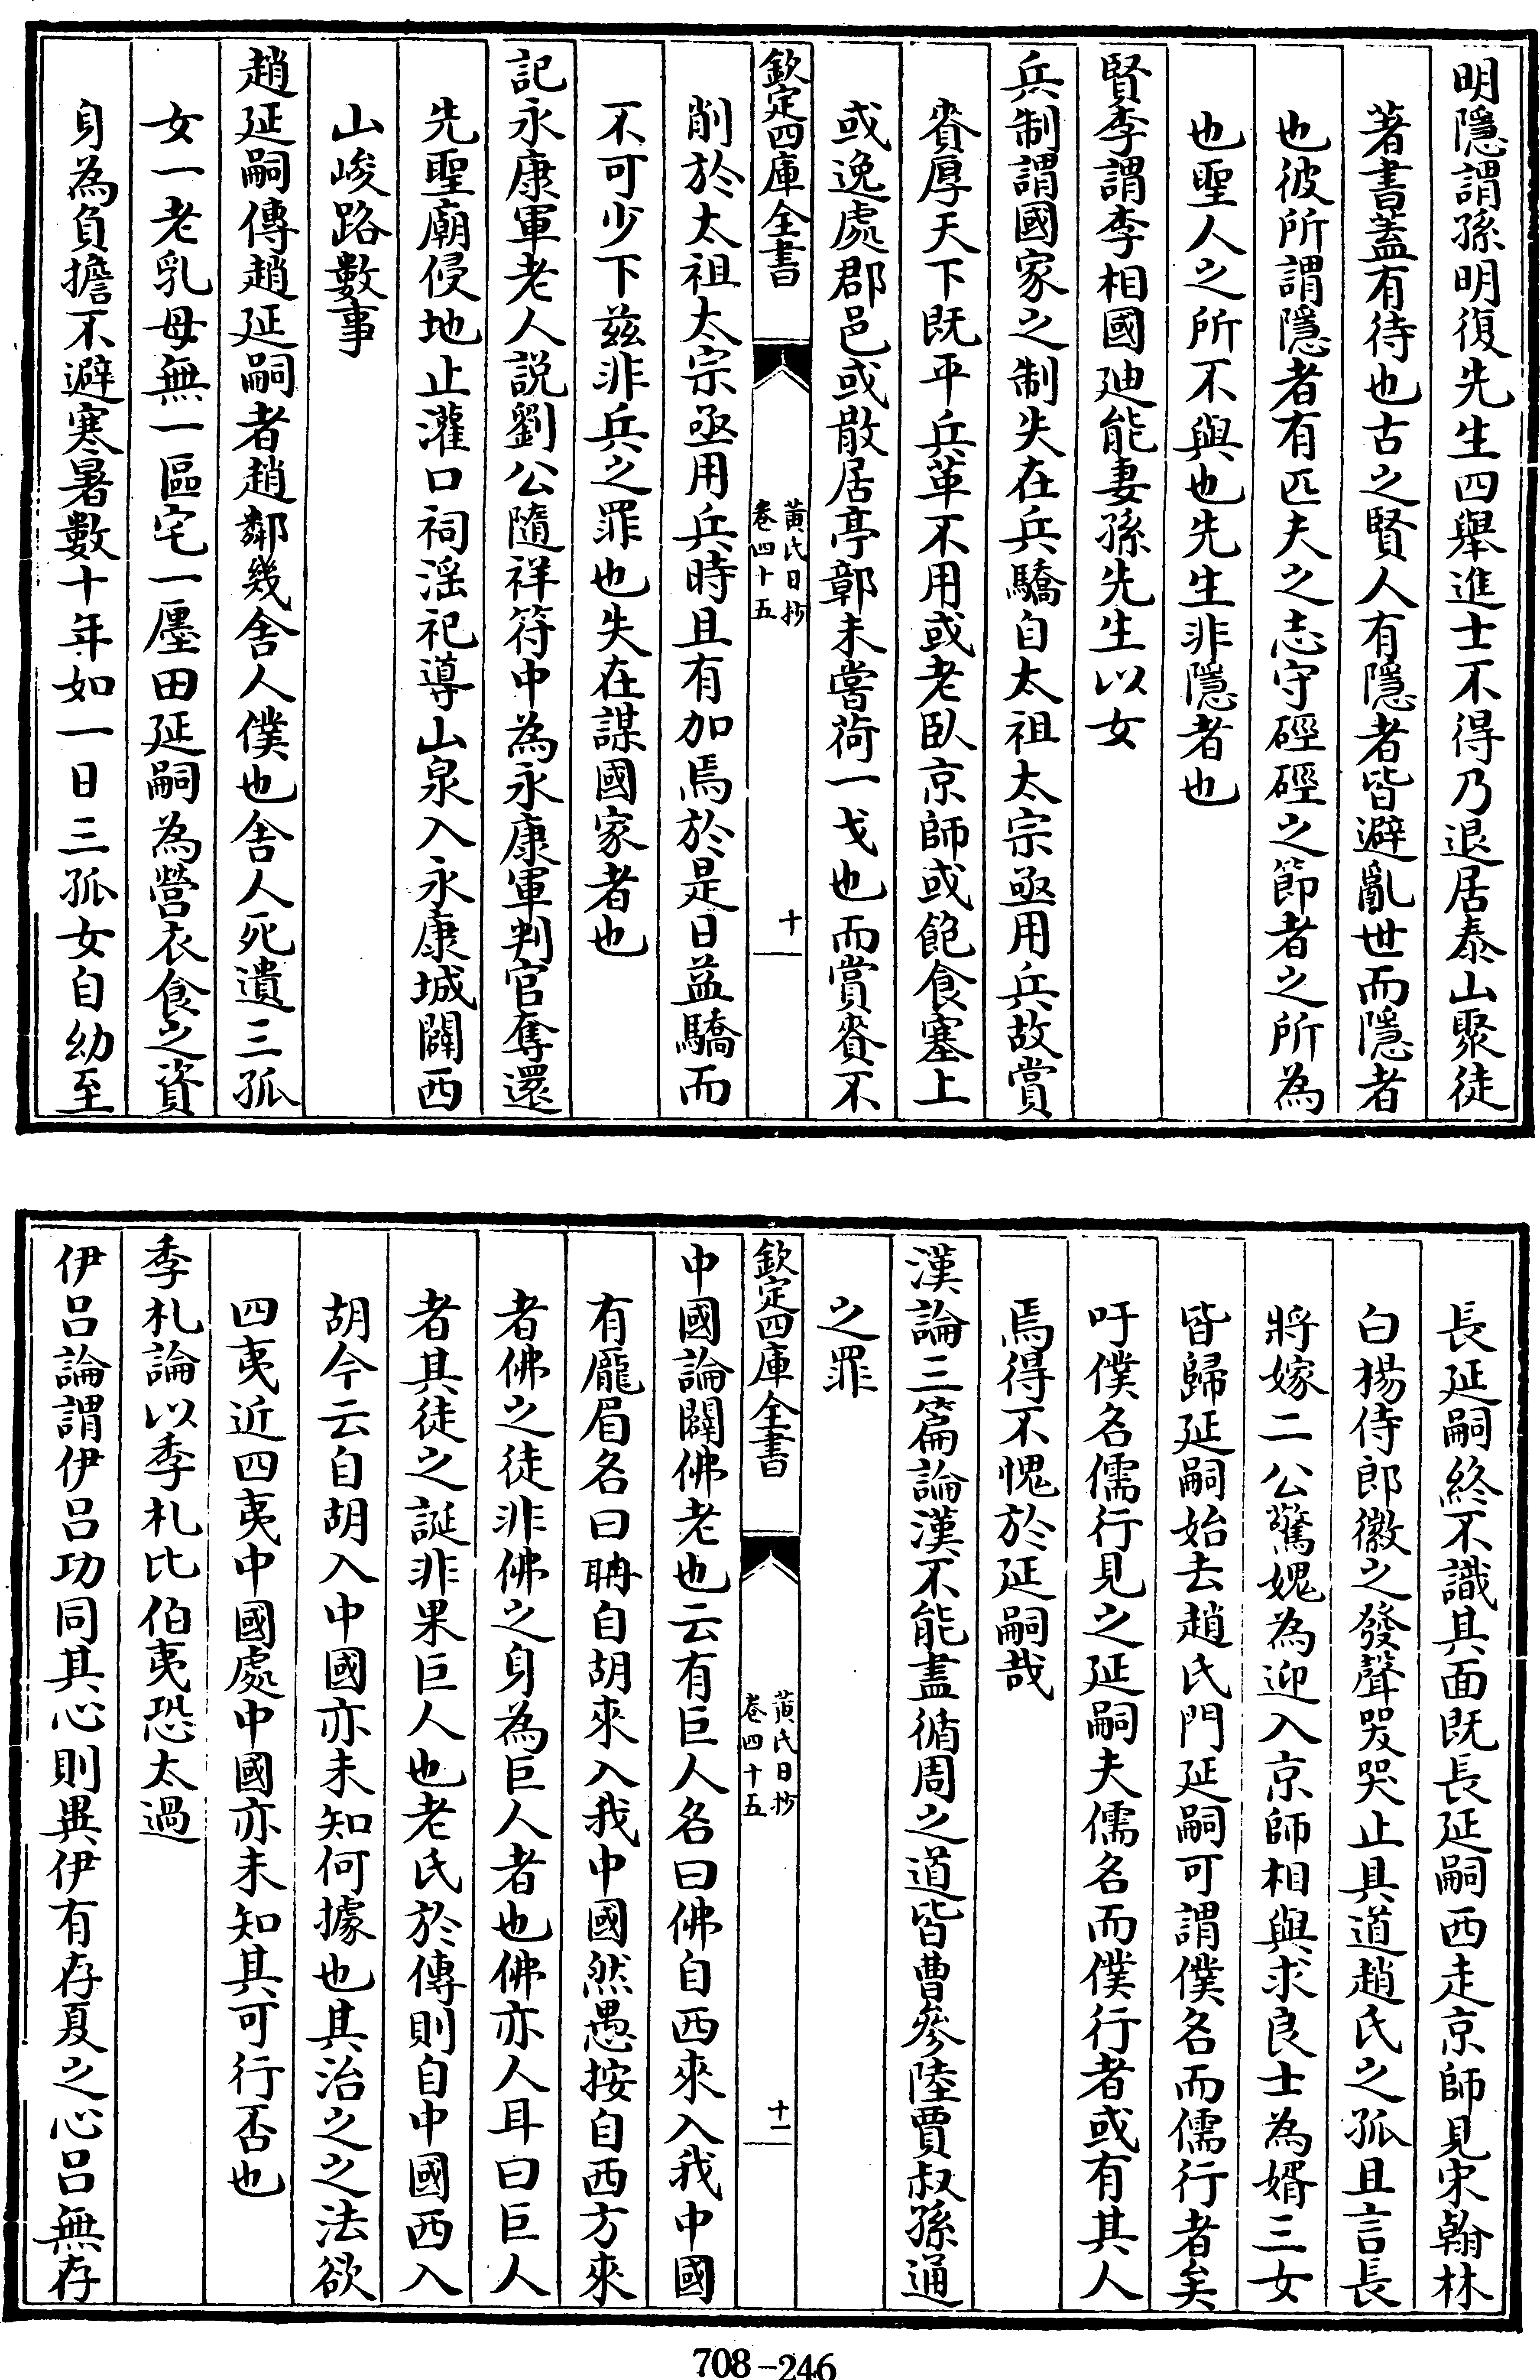 明隱謂孫明復先生四舉進士不得乃退居泰山聚徒
著書蓋有待也古之賢人有隱者皆避亂世而隱者
也彼所謂隱者有匹夫之志守硜硜之節者之所為
也聖人之所不與也先生非隱者也
賢李謂李相國廸能妻孫先生以女
兵制謂國家之制失在兵驕自太祖太宗亟用兵故賞
賚厚天下既平兵革不用或老臥京師或飽食塞上
或逸處郡邑或散居亭鄣未嘗荷一戈也而賞賚不
欽定四庫全書
黃氏日抄
卷四十五
十
削於太祖太宗亟用兵時且有加焉於是日益驕而
不可少下兹非兵之罪也失在謀國家者也
記永康軍老人説劉公隨祥符中為永康軍判官奪還
先聖廟侵地止灌口祠滛祀導山泉入永康城闢西
山峻路數事
趙延嗣傳趙延嗣者趙鄰幾舍人僕也舍人死遺三孤
女一老乳母無一區宅一廛田延嗣為營衣食之資
身為負擔不避寒暑數十年如一日三孤女自幼至
長延嗣終不識其面既長延嗣西走京師見宋翰林
白楊侍郎徽之發聲哭哭止具道趙氏之孤且言長
將嫁二公驚媿為迎入京師相與求良士為婿三女
皆歸延嗣始去趙氏門延嗣可謂僕名而儒行者矣
吁僕名儒行見之延嗣夫儒名而僕行者或有其人
焉得不愧於延嗣哉
漢論三篇論漢不能盡循周之道皆曹參陸賈叔孫通
之罪
欽定四庫全書
黃氏日抄
卷四十五
十一
中國論闢佛老也云有巨人名曰佛自西來入我中國
有龐眉名曰聃自胡來入我中國然愚按自西方來
者佛之徒非佛之身為巨人者也佛亦人耳曰巨人
者其徒之誕非果巨人也老氏於傳則自中國西入
胡今云自胡入中國亦未知何據也其治之之法欲
四夷近四夷中國處中國亦未知其可行否也
季札論以季札比伯夷恐太過
伊呂論謂伊呂功同其心則異伊有存夏之心呂無存
708-246